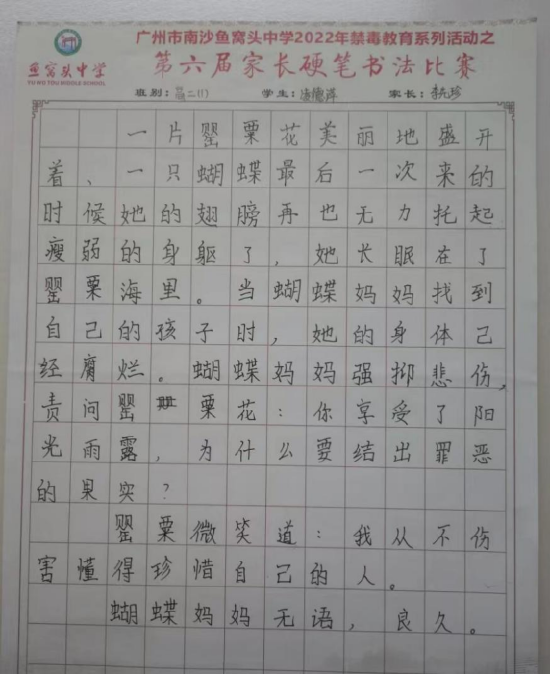 广州市南沙鱼窝头中学2022年禁毒教育系列活动之
鱼窝头中学
YU WO TOU MIDDLE SCHOOL
第六届家长硬笔书法比赛
班别: 初二(1) 学生: 家长:
一片罂粟花美丽地盛开
着、一只蝴蝶最后一次来的
时候她的翅膀再也无力托起
瘦弱的身躯了,她长眠在了
罂粟海里。当蝴蝶妈妈找到
自己的孩子时,她的身体己
经腐烂。蝴蝶妈妈强抑悲伤,
责问罂粟花:你享受了阳
光雨露,为什么要结出罪恶
的果实?
罂粟微笑道:我从不伤
害懂得珍惜自己的人。
蝴蝶妈妈无语,良久。